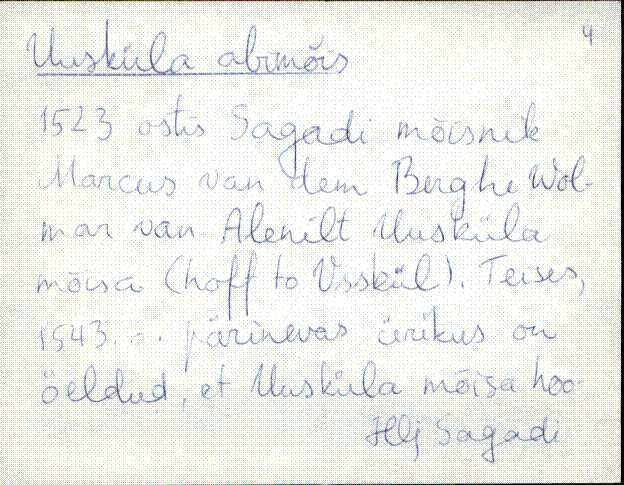 4
Uusküla abimõis
1523 ostis Sagadi mõisnik
Marcus van dem Berghe Wol-
mar van Alenilt Uusküla
mõisa (hoff to Vsskül). Teises,
1543. a. pärinevas ürikus on
öeldud, et Uusküla mõisa hoo-
Hlj Sagadi